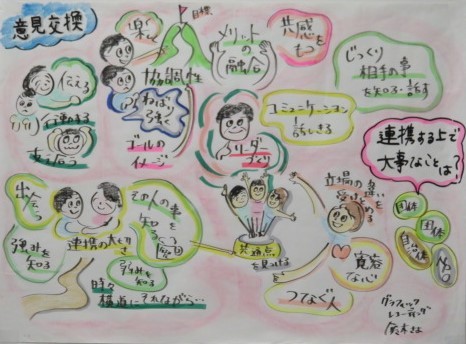 意見交換
楽しく
目標
メリットの
融合
共感を
もつ
じっくり
相手の事
を知る・話す
伝える
協調性
ねばり
強く
ゴールの
イメージ
行動する
支え合う
リーダー
コミュニケーション
話しきる
連携する上で
大事なことは?
出会う
その人の事を
知る
強みを
知る
連携の大切さ
弱みを
知る
時々
横道にそれながら…
共通点
を見つける
立場の違いを
受けとめる
寛容
な心
つなぐ人
団体
団体
自治体
グラフィック
レコーディング